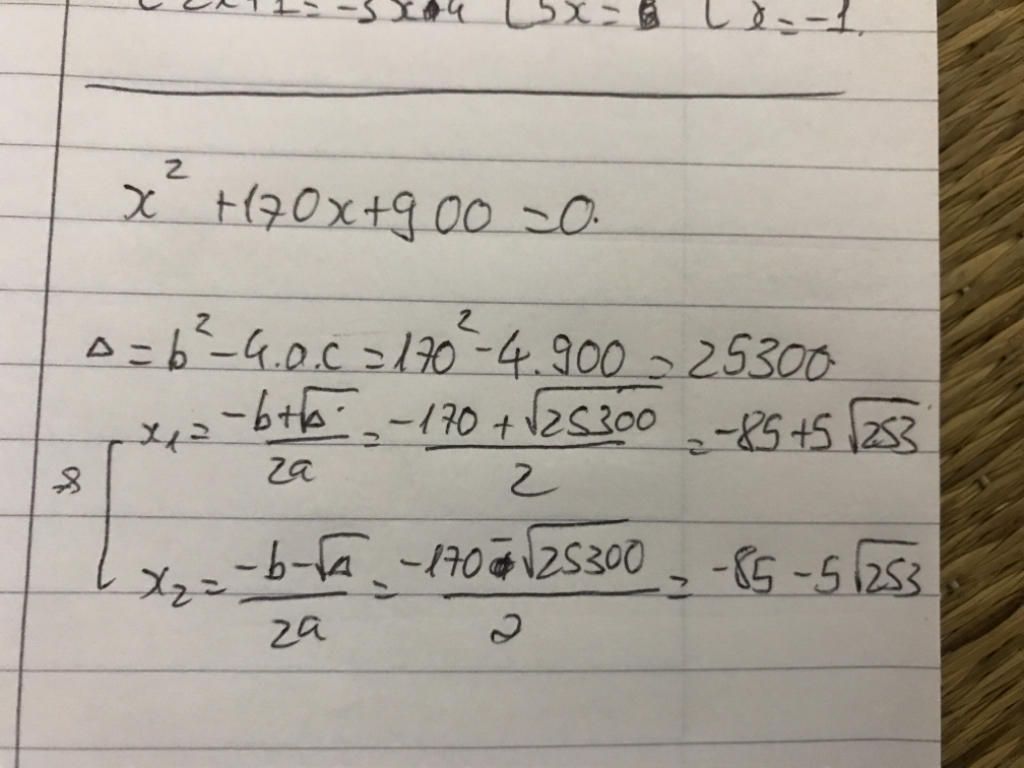 2x+1=-3x-4 [5x= [x=-1.
x²+170x+900=0.
Δ=b²-4.a.c=170²-4.900=25300.
x₁=(-b+√Δ)/2a=(-170+√25300)/2=-85+5√253
x₂=(-b-√Δ)/2a=(-170-√25300)/2=-85-5√253